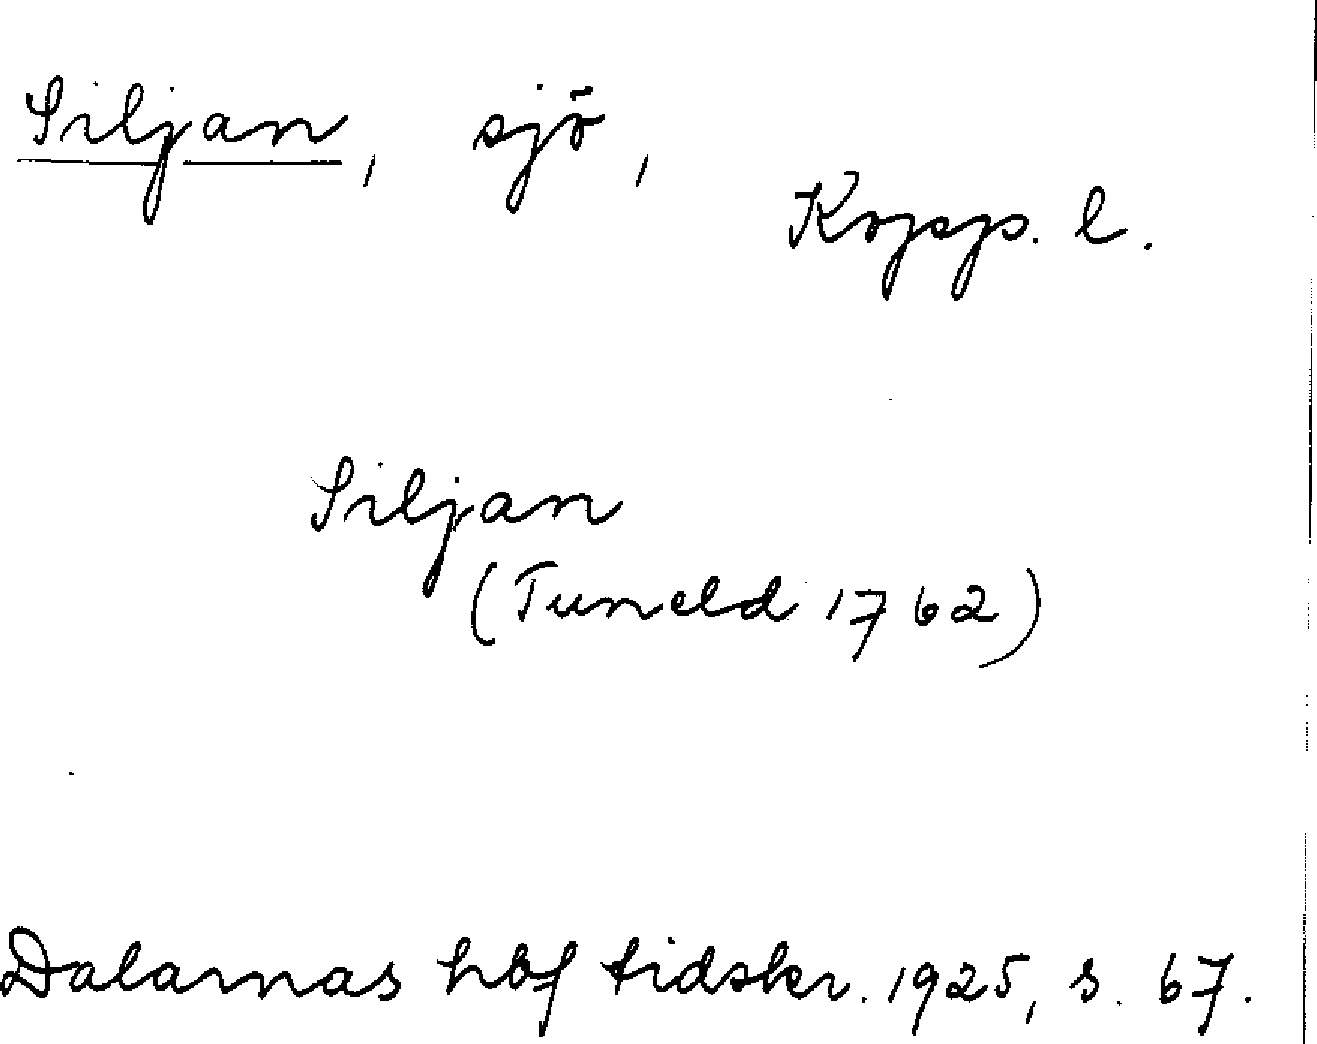 Siljan, sjö,
Kopp. l.
Siljan
(Tuneld 1762)
Dalarnas hbf tidskr. 1925, s. 67.